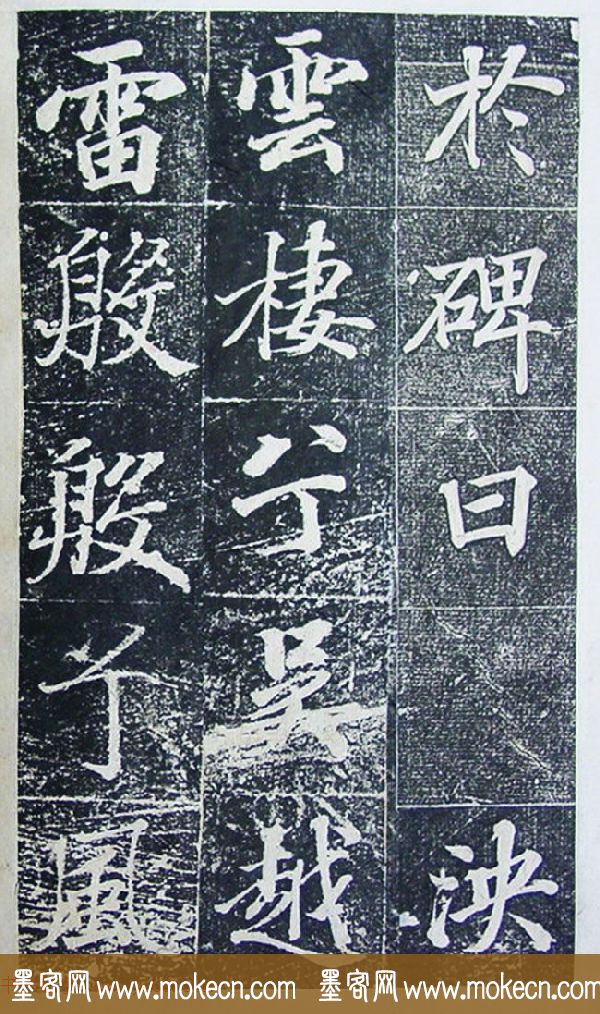 於碑曰 泱
雲棲兮吳越
雷殷殷兮風
墨客网 www.mokecn.com 墨客网 www.mokecn.com